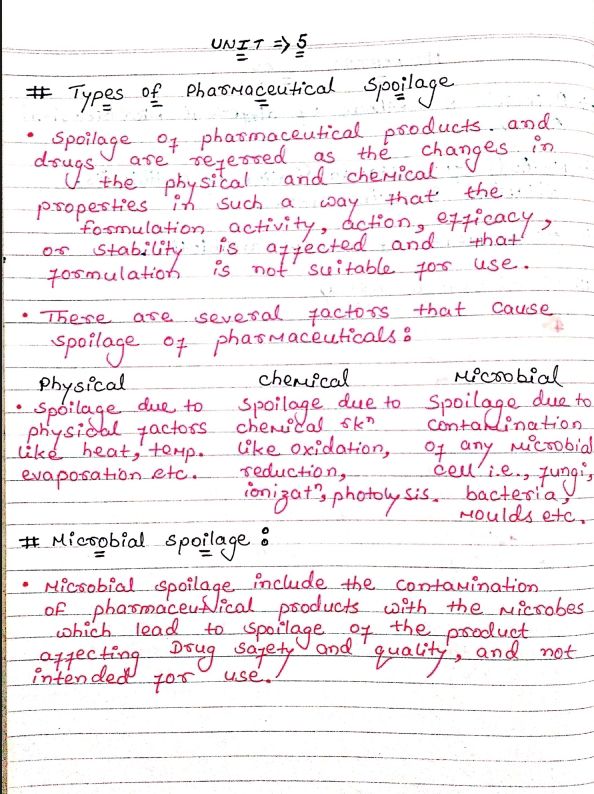 UNIT => 5
# Types of Pharmaceutical Spoilage
• Spoilage of pharmaceutical products and
drugs are referred as the changes in
the physical and chemical
properties in such a way that the
formulation activity, action, efficacy,
or stability is affected and that
formulation is not suitable for use.
• There are several factors that cause
spoilage of pharmaceuticals:
Physical chemical Microbial
• Spoilage due to Spoilage due to Spoilage due to
physical factors chemical rxⁿ contamination
like heat, temp. like oxidation, of any microbial
evaporation etc. reduction, cell i.e., fungi,
ionizatⁿ, photolysis. bacteria,
Moulds etc.
# Microbial spoilage:
• Microbial spoilage include the contamination
of pharmaceutical products with the microbes
which lead to spoilage of the product
affecting Drug safety and quality, and not
intended for use.